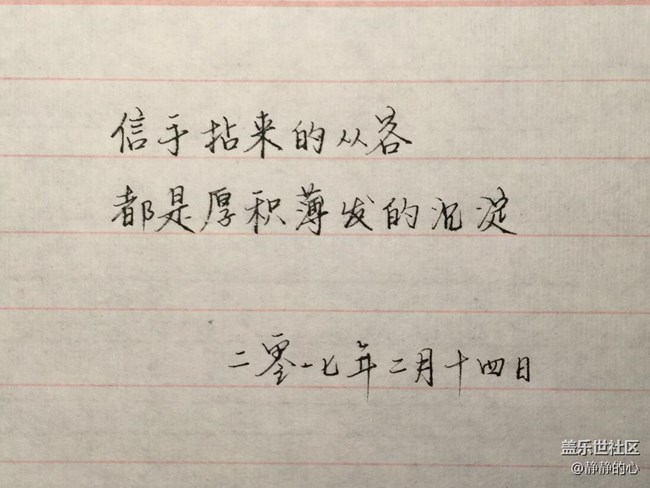 信手拈来的从容
都是厚积薄发的沉淀
二零一七年二月十四日
盖乐世社区
@静静的心